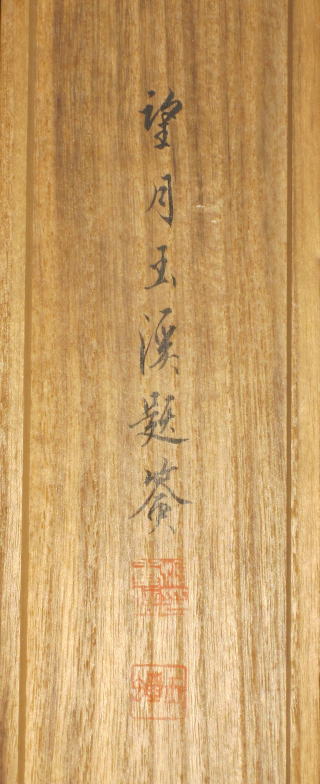 望月玉溪題簽